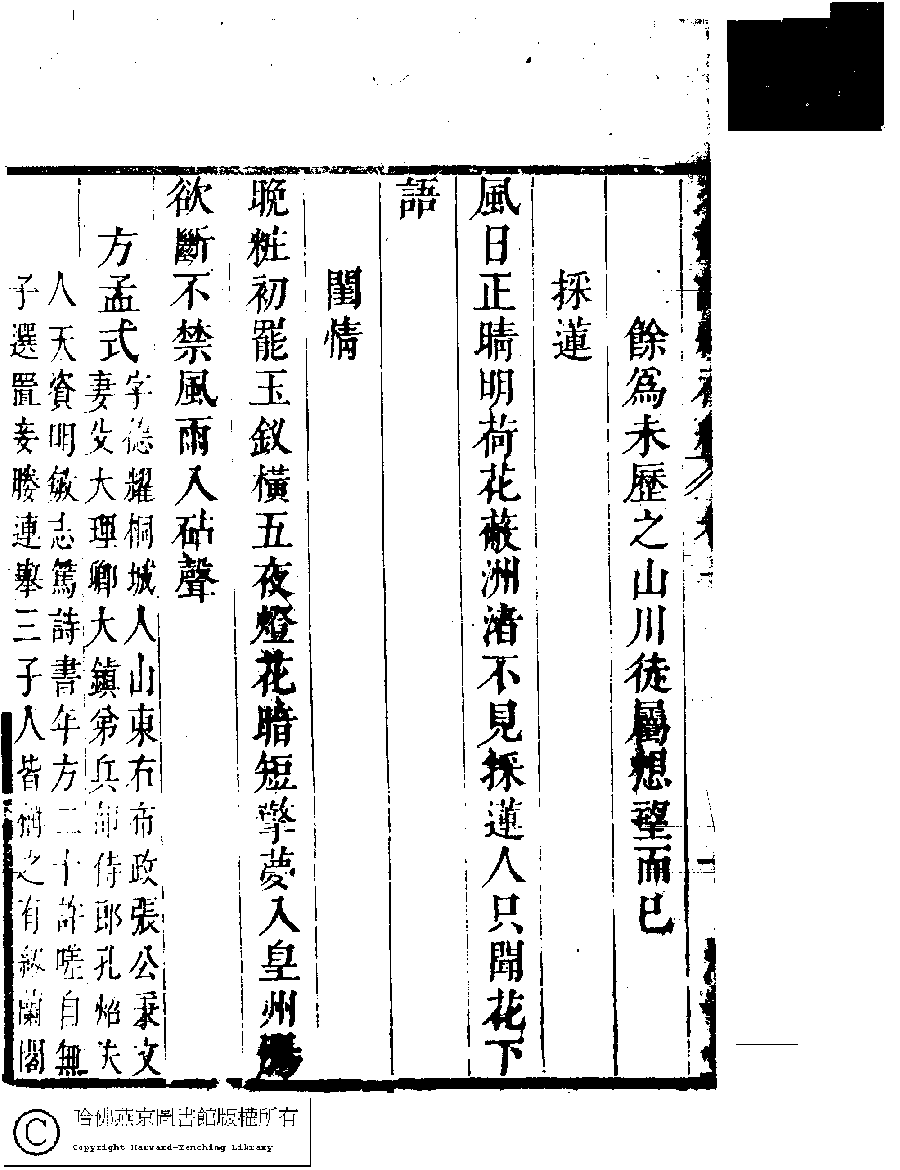 餘爲未歷之山川徒屬想望而已
採蓮
風日正晴明荷花蔽洲渚不見採蓮人只聞花下
語
閨情
晩粧初罷玉釵橫五夜燈花暗短擎夢入皇州
欲斷不禁風雨入砧聲
方孟式
字德耀桐城人山東右布政張公秉文
妻父大理卿大鎮弟兵部侍郎孔炤夫
人天資明敏志篤詩書年方二十許嗟自無
子選置妾媵連舉三子人皆稱之有紉蘭閣
哈佛燕京圖書館版權所有
Copyright Harvard-Yenching Library